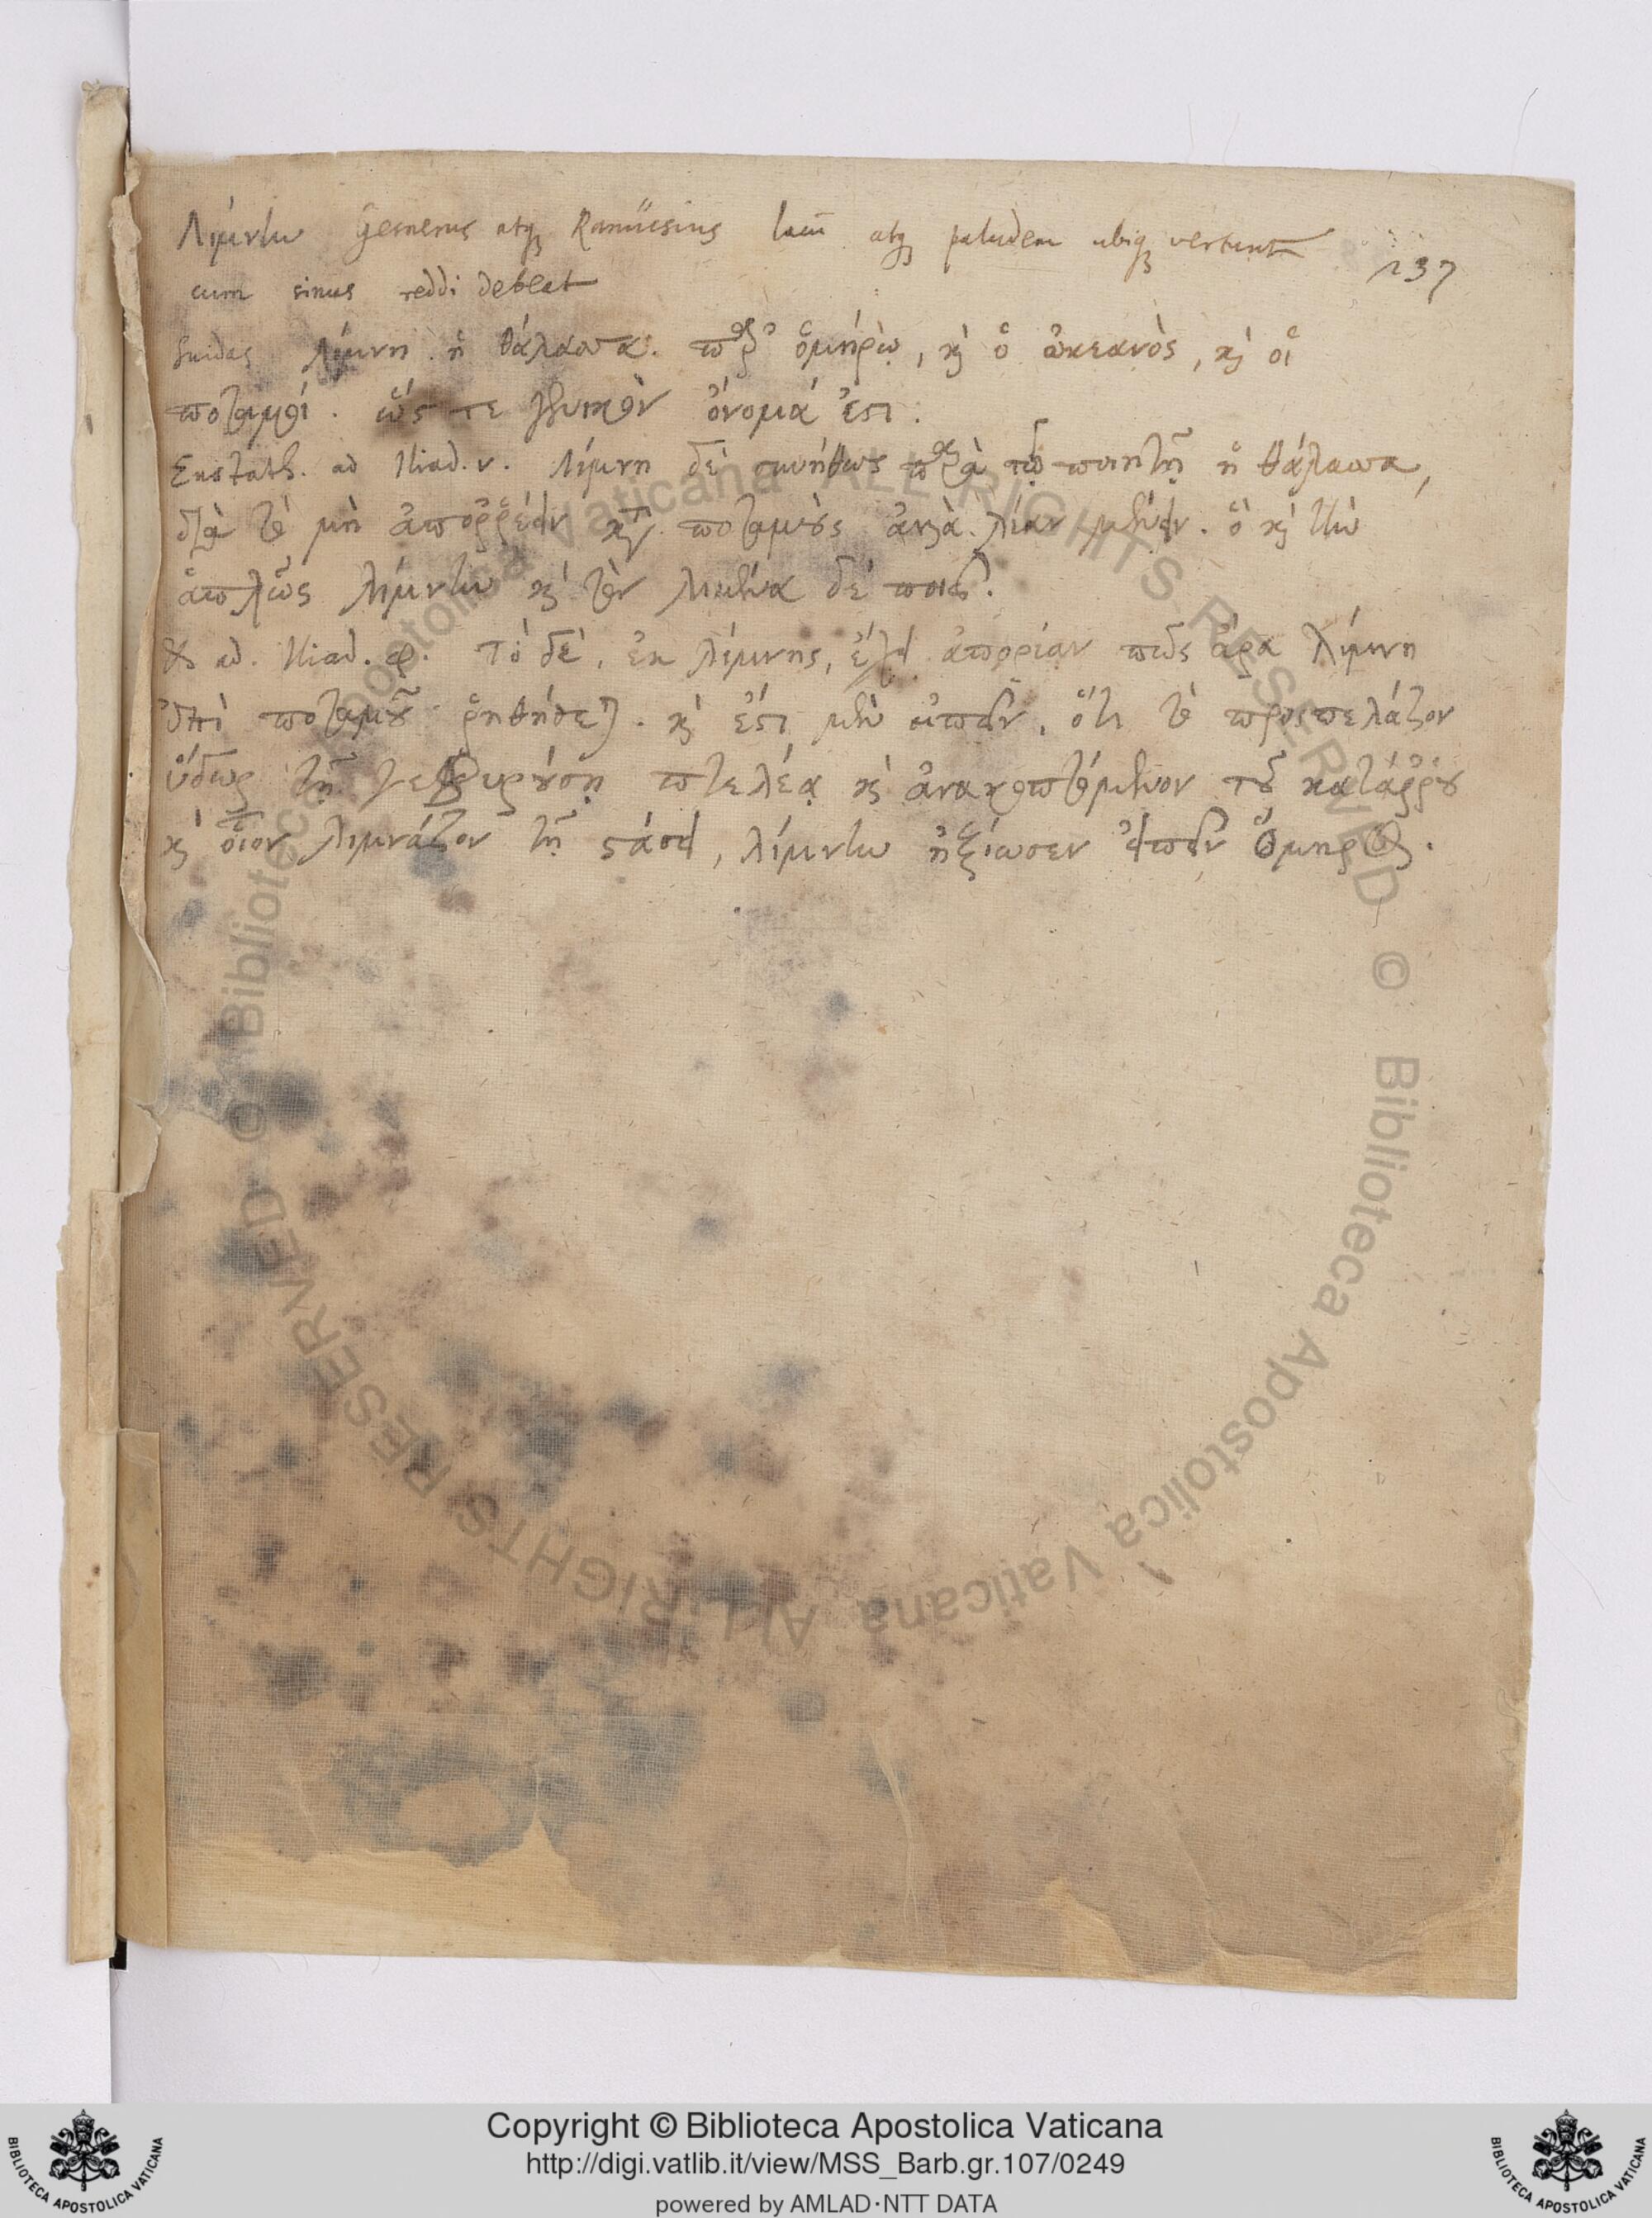 Λίμνην Gesnerus atq; Ramusius lacū atq; paludem ubiq; vertunt
237
cum sinus reddi debeat
Suidas λίμνη. ἡ θάλασσα. παρ' ὁμήρῳ, κὶ ὁ ὠκεανὸς, κὶ οἱ
ποταμοί. ὥς τε γενικὸν ὄνομά ἐστι.
Eustath. ad Iliad. ν. λίμνη δὲ συνήθως παρὰ τῷ ποιητῇ ἡ θάλασσα,
διὰ τὸ μὴ ἀπορρέειν κτ̀ ποταμοὺς ἀλλὰ λίαν μένειν. ὃ κὶ τὴν
ἁπλῶς λίμνην κὶ τὸν λιμένα δὲ ποιεῖ.
& ad. Iliad. φ. τὸ δὲ, ἐκ λίμνης, ἔχει ἀπορίαν πῶς ἄρα λίμνη
ἐπὶ ποταμοῦ ῥηθήσεται. κὶ ἔστι μὲν εἰπεῖν, ὅτι τὸ προσπελάζον
ὕδωρ τῇ γεφυρούσῃ πτελέᾳ κὶ ἀνακοπτόμενον τοῦ κατάρρου
κὶ οἷον λιμνάζον τῇ στάσει, λίμνην ἠξίωσεν εἰπεῖν Ὅμηρος.
Copyright © Biblioteca Apostolica Vaticana
http://digi.vatlib.it/view/MSS_Barb.gr.107/0249
powered by AMLAD·NTT DATA
BIBLIOTECA APOSTOLICA VATICANA
BIBLIOTECA APOSTOLICA VATICANA
© Biblioteca Apostolica Vaticana ALL RIGHTS RESERVED
© Biblioteca Apostolica Vaticana ALL RIGHTS RESERVED